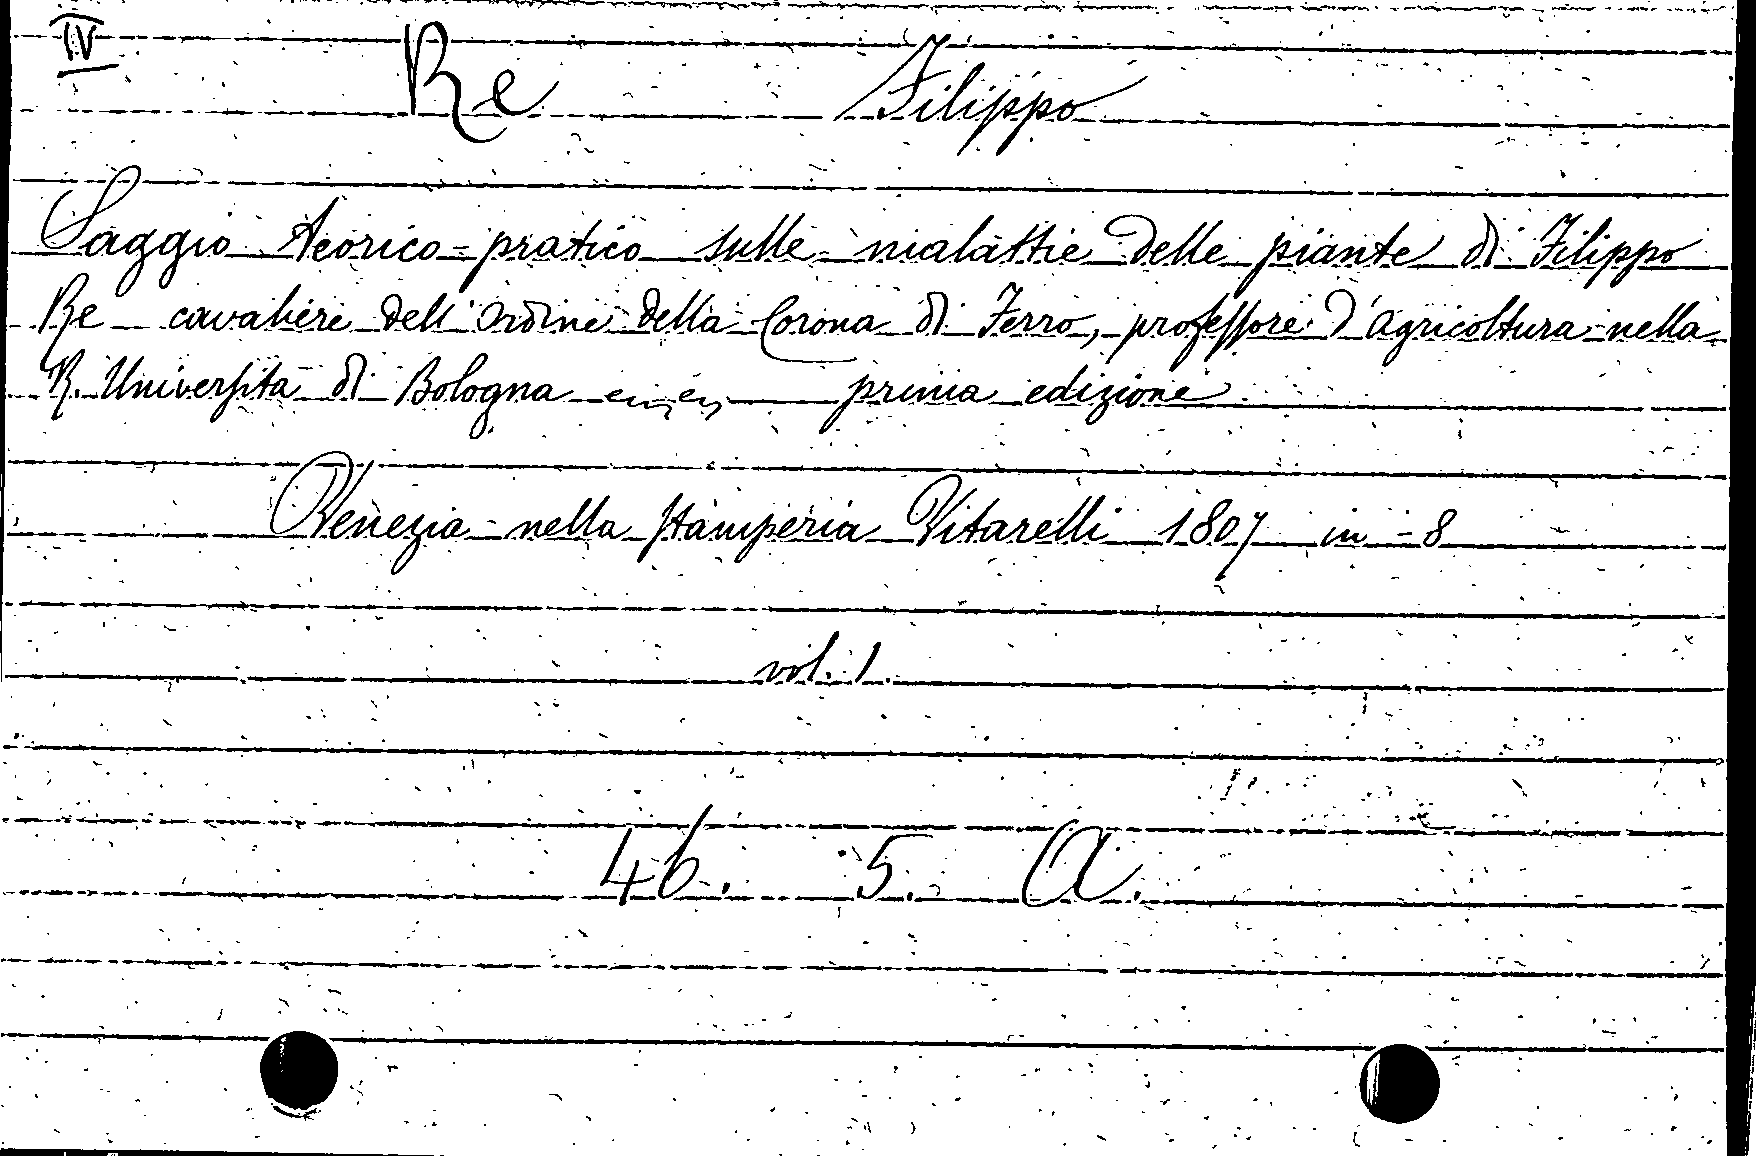 IV
Re Filippo
Saggio teorico=pratico sulle malattie delle piante di Filippo
Re cavaliere dell'Ordine della Corona di Ferro, professore d'Agricoltura nella
R. Università di Bologna prima edizione
Venezia nella stamperia Vitarelli 1807 in-8
vol. 1.
46. 5. A.